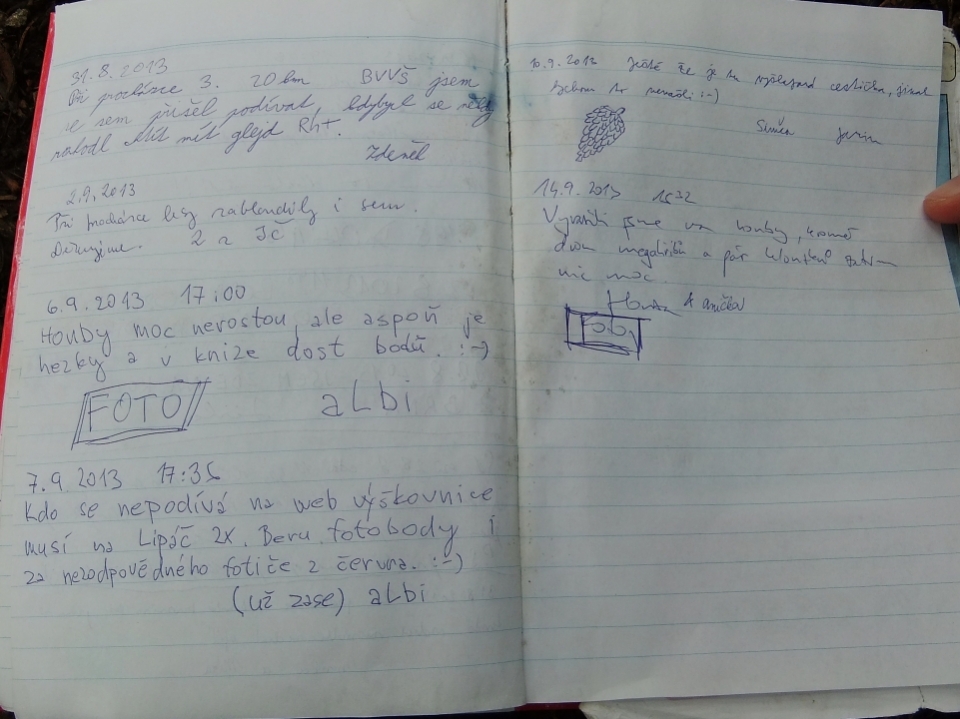 31.8.2013
Při pochůzce 3. 20 km BVVŠ jsem
se sem přišel podívat, kdyby se
mít glejd Rh+.
Zdeněk
2.9.2013
Při pochůzce lesy zabloudily i sem.
Děkujeme. 2 z JČ
6.9.2013 17:00
Houby moc nerostou, ale aspoň je
hezky a v knize dost bodů. :-)
FOTO aLbi
7.9 2013 17:35
Kdo se nepodívá na web výškovnice
musí na Lipáč 2x. Beru fotobody i
za nezodpovědného fotiče z června. :-)
(už zase) aLbi
10.9.2013 Ještě že je tu cestička, jinak
bychom to nenašli :-)
Simča
14.9.2013 1532
Vyrazili jsme na houby, kromě
dvou megahřibů a pár
nic moc.
Honza &
Foto